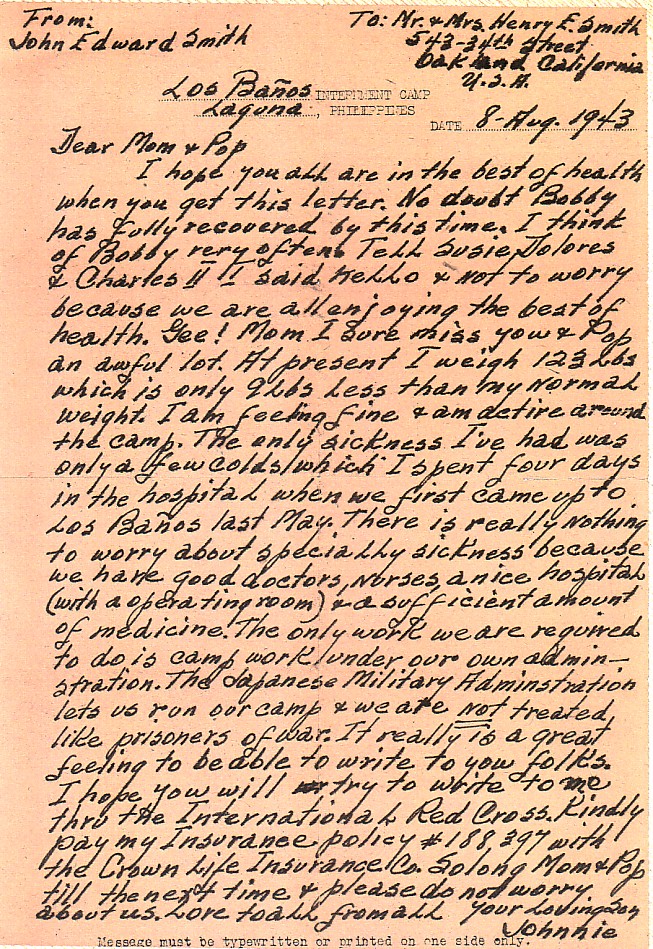 From:
John Edward Smith
To: Mr. & Mrs. Henry E. Smith
543-34th Street
Oakland California
U.S.A.
Los Baños INTERNMENT CAMP
Laguna, PHILIPPINES
DATE 8-Aug. 1943
Dear Mom & Pop
I hope you all are in the best of health
when you get this letter. No doubt Bobby
has fully recovered by this time. I think
of Bobby very often. Tell Susie, Dolores
& Charles II I said Hello & not to worry
because we are all enjoying the best of
health. Gee! Mom I sure miss you & Pop
an awful lot. At present I weigh 123 Lbs
which is only 9 Lbs less than my normal
weight. I am feeling fine & am active around
the camp. The only sickness I've had was
only a few colds which I spent four days
in the hospital when we first came up to
Los Baños last May. There is really nothing
to worry about specially sickness because
we have good doctors, nurses, a nice hospital
(with a operating room) & a sufficient amount
of medicine. The only work we are required
to do is camp work under our own admin-
stration. The Japanese Military Adminstration
lets us run our camp & we are not treated
like prisoners of war. It really is a great
feeling to be able to write to you folks.
I hope you will try to write to me
thru the International Red Cross. Kindly
pay my Insurance policy #188,397 with
the Crown Life Insurance Co. So long Mom & Pop
till the next time & please do not worry
about us. Love to all from all Your Loving Son
Johnnie
Message must be typewritten or printed on one side only.